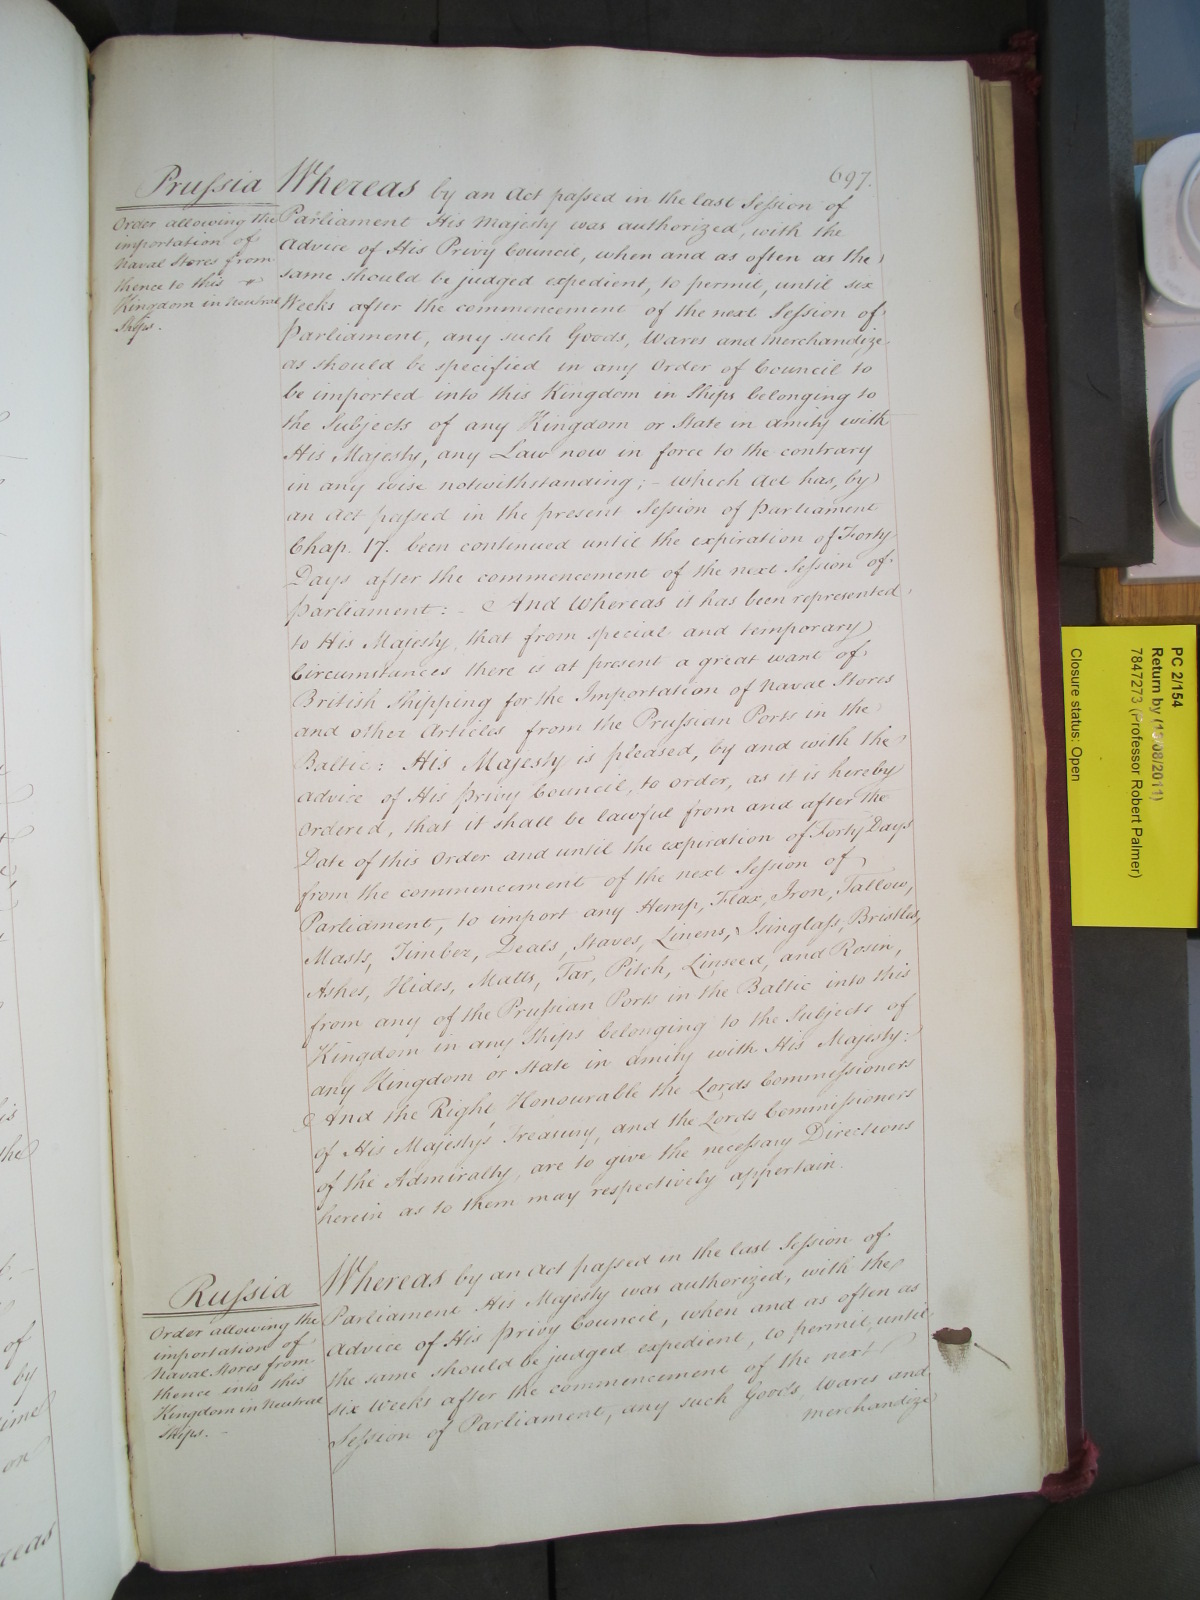 697.
Prussia
Order allowing the
importation of
Naval Stores from
thence to this
Kingdom in Neutral
Ships.
Whereas by an Act passed in the last Session of
Parliament His Majesty was authorized, with the
Advice of His Privy Council, when and as often as the
same should be judged expedient, to permit, until six
Weeks after the commencement of the next Session of
Parliament, any such Goods, Wares and Merchandize
as should be specified in any Order of Council to
be imported into this Kingdom in Ships belonging to
the Subjects of any Kingdom or State in amity with
His Majesty, any Law now in force to the contrary
in any wise notwithstanding; - which Act has, by
an Act passed in the present Session of Parliament
Chap. 17. been continued until the expiration of Forty
Days after the commencement of the next Session of
Parliament: - And Whereas it has been represented
to His Majesty, that from special and temporary
Circumstances there is at present a great want of
British Shipping for the Importation of Naval Stores
and other Articles from the Prussian Ports in the
Baltic: His Majesty is pleased, by and with the
advice of His Privy Council, to order, as it is hereby
Ordered, that it shall be lawful from and after the
Date of this Order and until the expiration of Forty Days
from the commencement of the next Session of
Parliament, to import any Hemp, Flax, Iron, Tallow,
Masts, Timber, Deals, Staves, Linens, Isinglass, Bristles,
Ashes, Hides, Matts, Tar, Pitch, Linseed, and Rosin,
from any of the Prussian Ports in the Baltic into this
Kingdom in any Ships belonging to the Subjects of
any Kingdom or State in amity with His Majesty:
And the Right Honourable the Lords Commissioners
of His Majesty's Treasury, and the Lords Commissioners
of the Admiralty, are to give the necessary Directions
herein as to them may respectively appertain.
Russia
Order allowing the
importation of
Naval Stores from
thence into this
Kingdom in Neutral
Ships. -
Whereas by an Act passed in the last Session of
Parliament His Majesty was authorized, with the
Advice of His Privy Council, when and as often as
the same should be judged expedient, to permit, until
six Weeks after the commencement of the next
Session of Parliament, any such Goods, Wares and
Merchandize
PC 2/154
Return by (15/08/2011)
7847273 (Professor Robert Palmer)
Closure status: Open